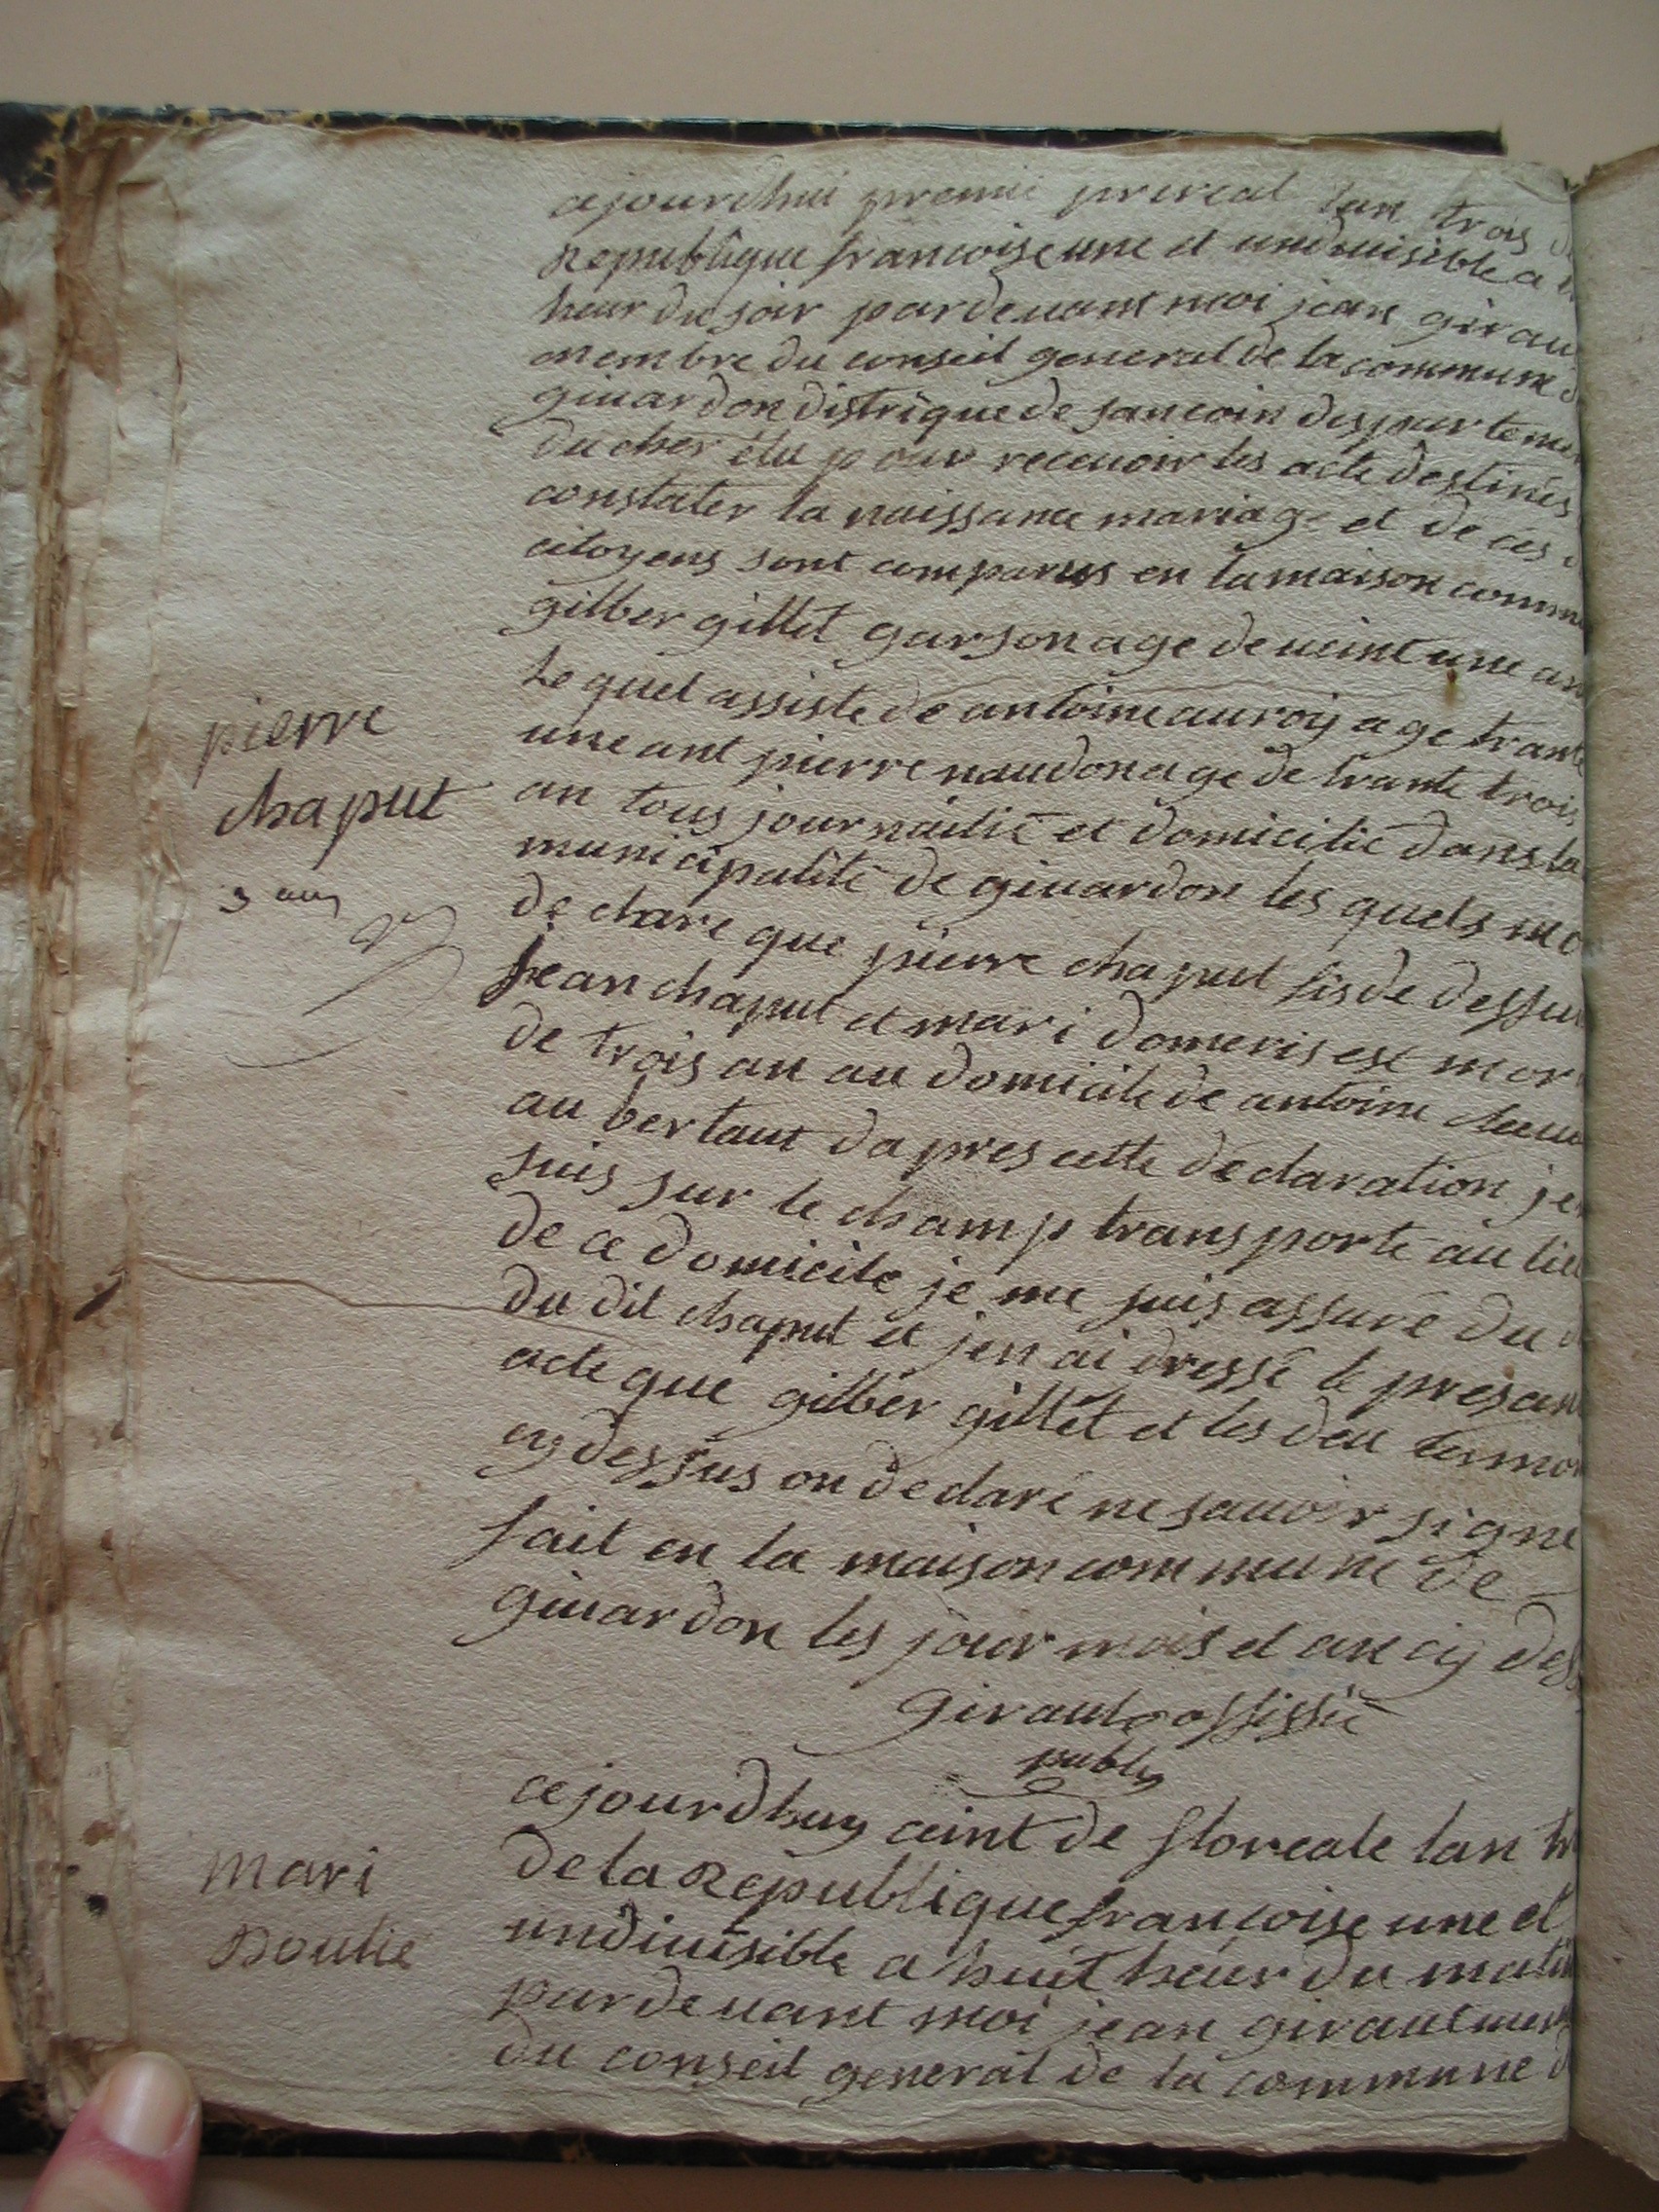 ajourdhui premié prereal lan trois
Republique francoise une et undiuisible a
heur du soir pardeuant moi jean girau
membre du conseil general de la commune d
giuardon distrique de sancoin despartemen
du cher élu pour receuoir les acte destinés
constater la naissance mariage et de ces
citoyens sont comparus en la maison commu
gilber gillet garson age de ueint une an
Le quel assiste de antoine auroy age trante
une ant pierre naudon age de trante trois
an tous journailié et domicilié dans la
municipalité de giuardon les quels me
pierre
chaput
3 ans
de chare que pierre chaput fis de deffun
jean chaput et mari domeris est mor
de trois an au domicile de antoine
au bertaut dapres cette declaration je
suis sur le champ transporté au lieu
de ce domicile je me suis assuré du d
du dit chaput et jen ai dressé le presan
acte que gilber gillet et les deu temon
cy dessus on declaré ne sauoir signe
fait en la maison commune de
giuardon les jour mois et an cy des
giraul offissié
public
mari
Doulié
cejourdhuy ceint de floreale lan tr
de la Republique francoise une et
undiuisible a huit heur du matin
pardeuant moi jean giraul mem
du conseil general de la commune d